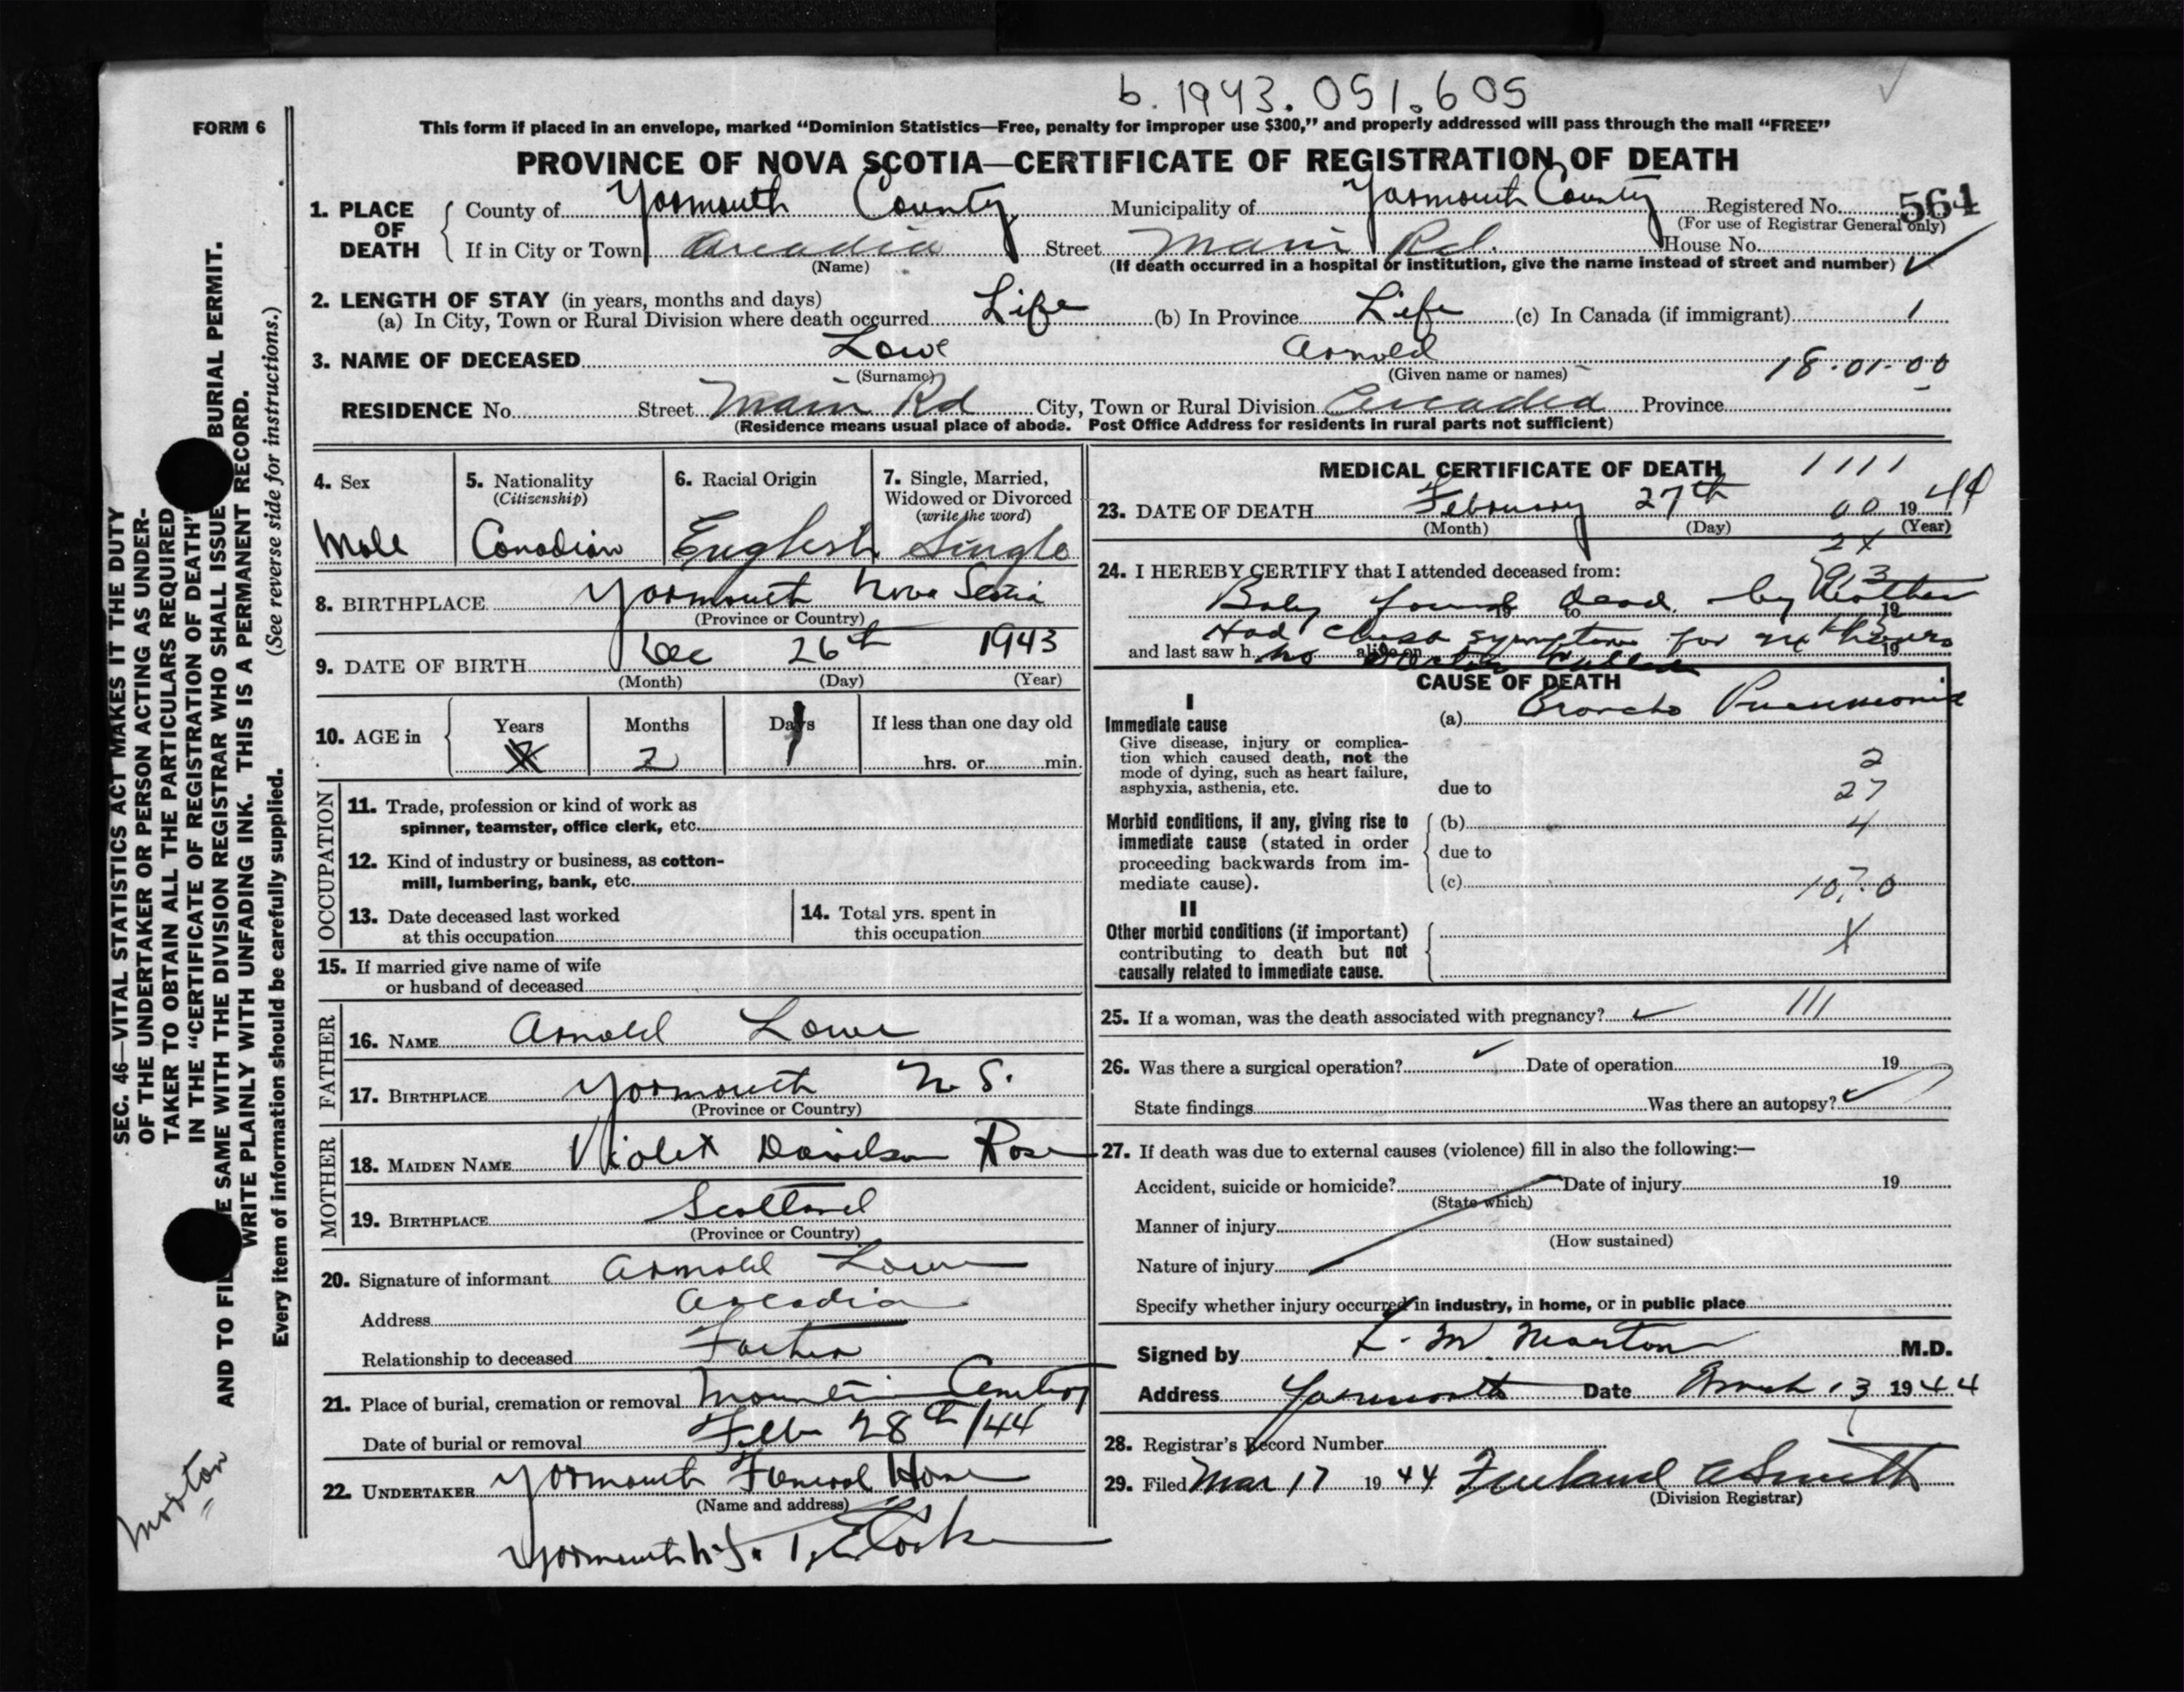 b. 1943. 051.605
FORM 6
This form if placed in an envelope, marked "Dominion Statistics—Free, penalty for improper use $300," and properly addressed will pass through the mail "FREE"
PROVINCE OF NOVA SCOTIA—CERTIFICATE OF REGISTRATION OF DEATH
1. PLACE OF DEATH County of Yarmouth County Municipality of Yarmouth County Registered No. 564
(For use of Registrar General only)
If in City or Town Arcadia Street Main Rd. House No.
(Name) (If death occurred in a hospital or institution, give the name instead of street and number)
2. LENGTH OF STAY (in years, months and days)
(a) In City, Town or Rural Division where death occurred Life (b) In Province Life (c) In Canada (if immigrant) 1
3. NAME OF DECEASED Lowe Arnold
(Surname) (Given name or names) 18.01.00
RESIDENCE No. Street Main Rd City, Town or Rural Division Arcadia Province
(Residence means usual place of abode. Post Office Address for residents in rural parts not sufficient)
4. Sex Male
5. Nationality (Citizenship) Canadian
6. Racial Origin English
7. Single, Married, Widowed or Divorced (write the word) Single
8. BIRTHPLACE Yarmouth Nova Scotia
(Province or Country)
9. DATE OF BIRTH Dec 26th 1943
(Month) (Day) (Year)
10. AGE in Years Months Days If less than one day old
2 1 hrs. or min.
OCCUPATION
11. Trade, profession or kind of work as
spinner, teamster, office clerk, etc.
12. Kind of industry or business, as cotton-
mill, lumbering, bank, etc.
13. Date deceased last worked
at this occupation
14. Total yrs. spent in
this occupation
15. If married give name of wife
or husband of deceased
FATHER
16. NAME Arnold Lowe
17. BIRTHPLACE Yarmouth N. S.
(Province or Country)
MOTHER
18. MAIDEN NAME Violet Davidson Rose
19. BIRTHPLACE Scotland
(Province or Country)
20. Signature of informant Arnold Lowe
Address Arcadia
Relationship to deceased Father
21. Place of burial, cremation or removal Mountain Cemetery
Date of burial or removal Feb 28th/44
22. UNDERTAKER Yarmouth Funeral Home
(Name and address)
Yarmouth N.S.
MEDICAL CERTIFICATE OF DEATH 1111
23. DATE OF DEATH February 27th 00 1944
(Month) (Day) (Year)
2X
24. I HEREBY CERTIFY that I attended deceased from:
Baby found dead by Mother
to 19
Had chest symptoms for
and last saw h alive on 19
CAUSE OF DEATH
I
Immediate cause
Give disease, injury or complica-
tion which caused death, not the
mode of dying, such as heart failure,
asphyxia, asthenia, etc.
(a) Broncho Pneumonia
2
due to 27
Morbid conditions, if any, giving rise to
immediate cause (stated in order
proceeding backwards from im-
mediate cause).
(b) 4
due to
(c) 107.0
II
Other morbid conditions (if important)
contributing to death but not
causally related to immediate cause.
X
25. If a woman, was the death associated with pregnancy? 111
26. Was there a surgical operation? Date of operation 19
State findings Was there an autopsy?
27. If death was due to external causes (violence) fill in also the following:—
Accident, suicide or homicide? Date of injury 19
(State which)
Manner of injury
(How sustained)
Nature of injury
Specify whether injury occurred in industry, in home, or in public place
Signed by L. M. Morton M.D.
Address Yarmouth Date March 13 1944
28. Registrar's Record Number
29. Filed Mar 17 1944 Freeland A Smith
(Division Registrar)
SEC. 46—VITAL STATISTICS ACT MAKES IT THE DUTY
OF THE UNDERTAKER OR PERSON ACTING AS UNDER-
TAKER TO OBTAIN ALL THE PARTICULARS REQUIRED
IN THE "CERTIFICATE OF REGISTRATION OF DEATH"
AND TO FILE SAME WITH THE DIVISION REGISTRAR WHO SHALL ISSUE BURIAL PERMIT.
WRITE PLAINLY WITH UNFADING INK. THIS IS A PERMANENT RECORD.
Every item of information should be carefully supplied. (See reverse side for instructions.)
Morton